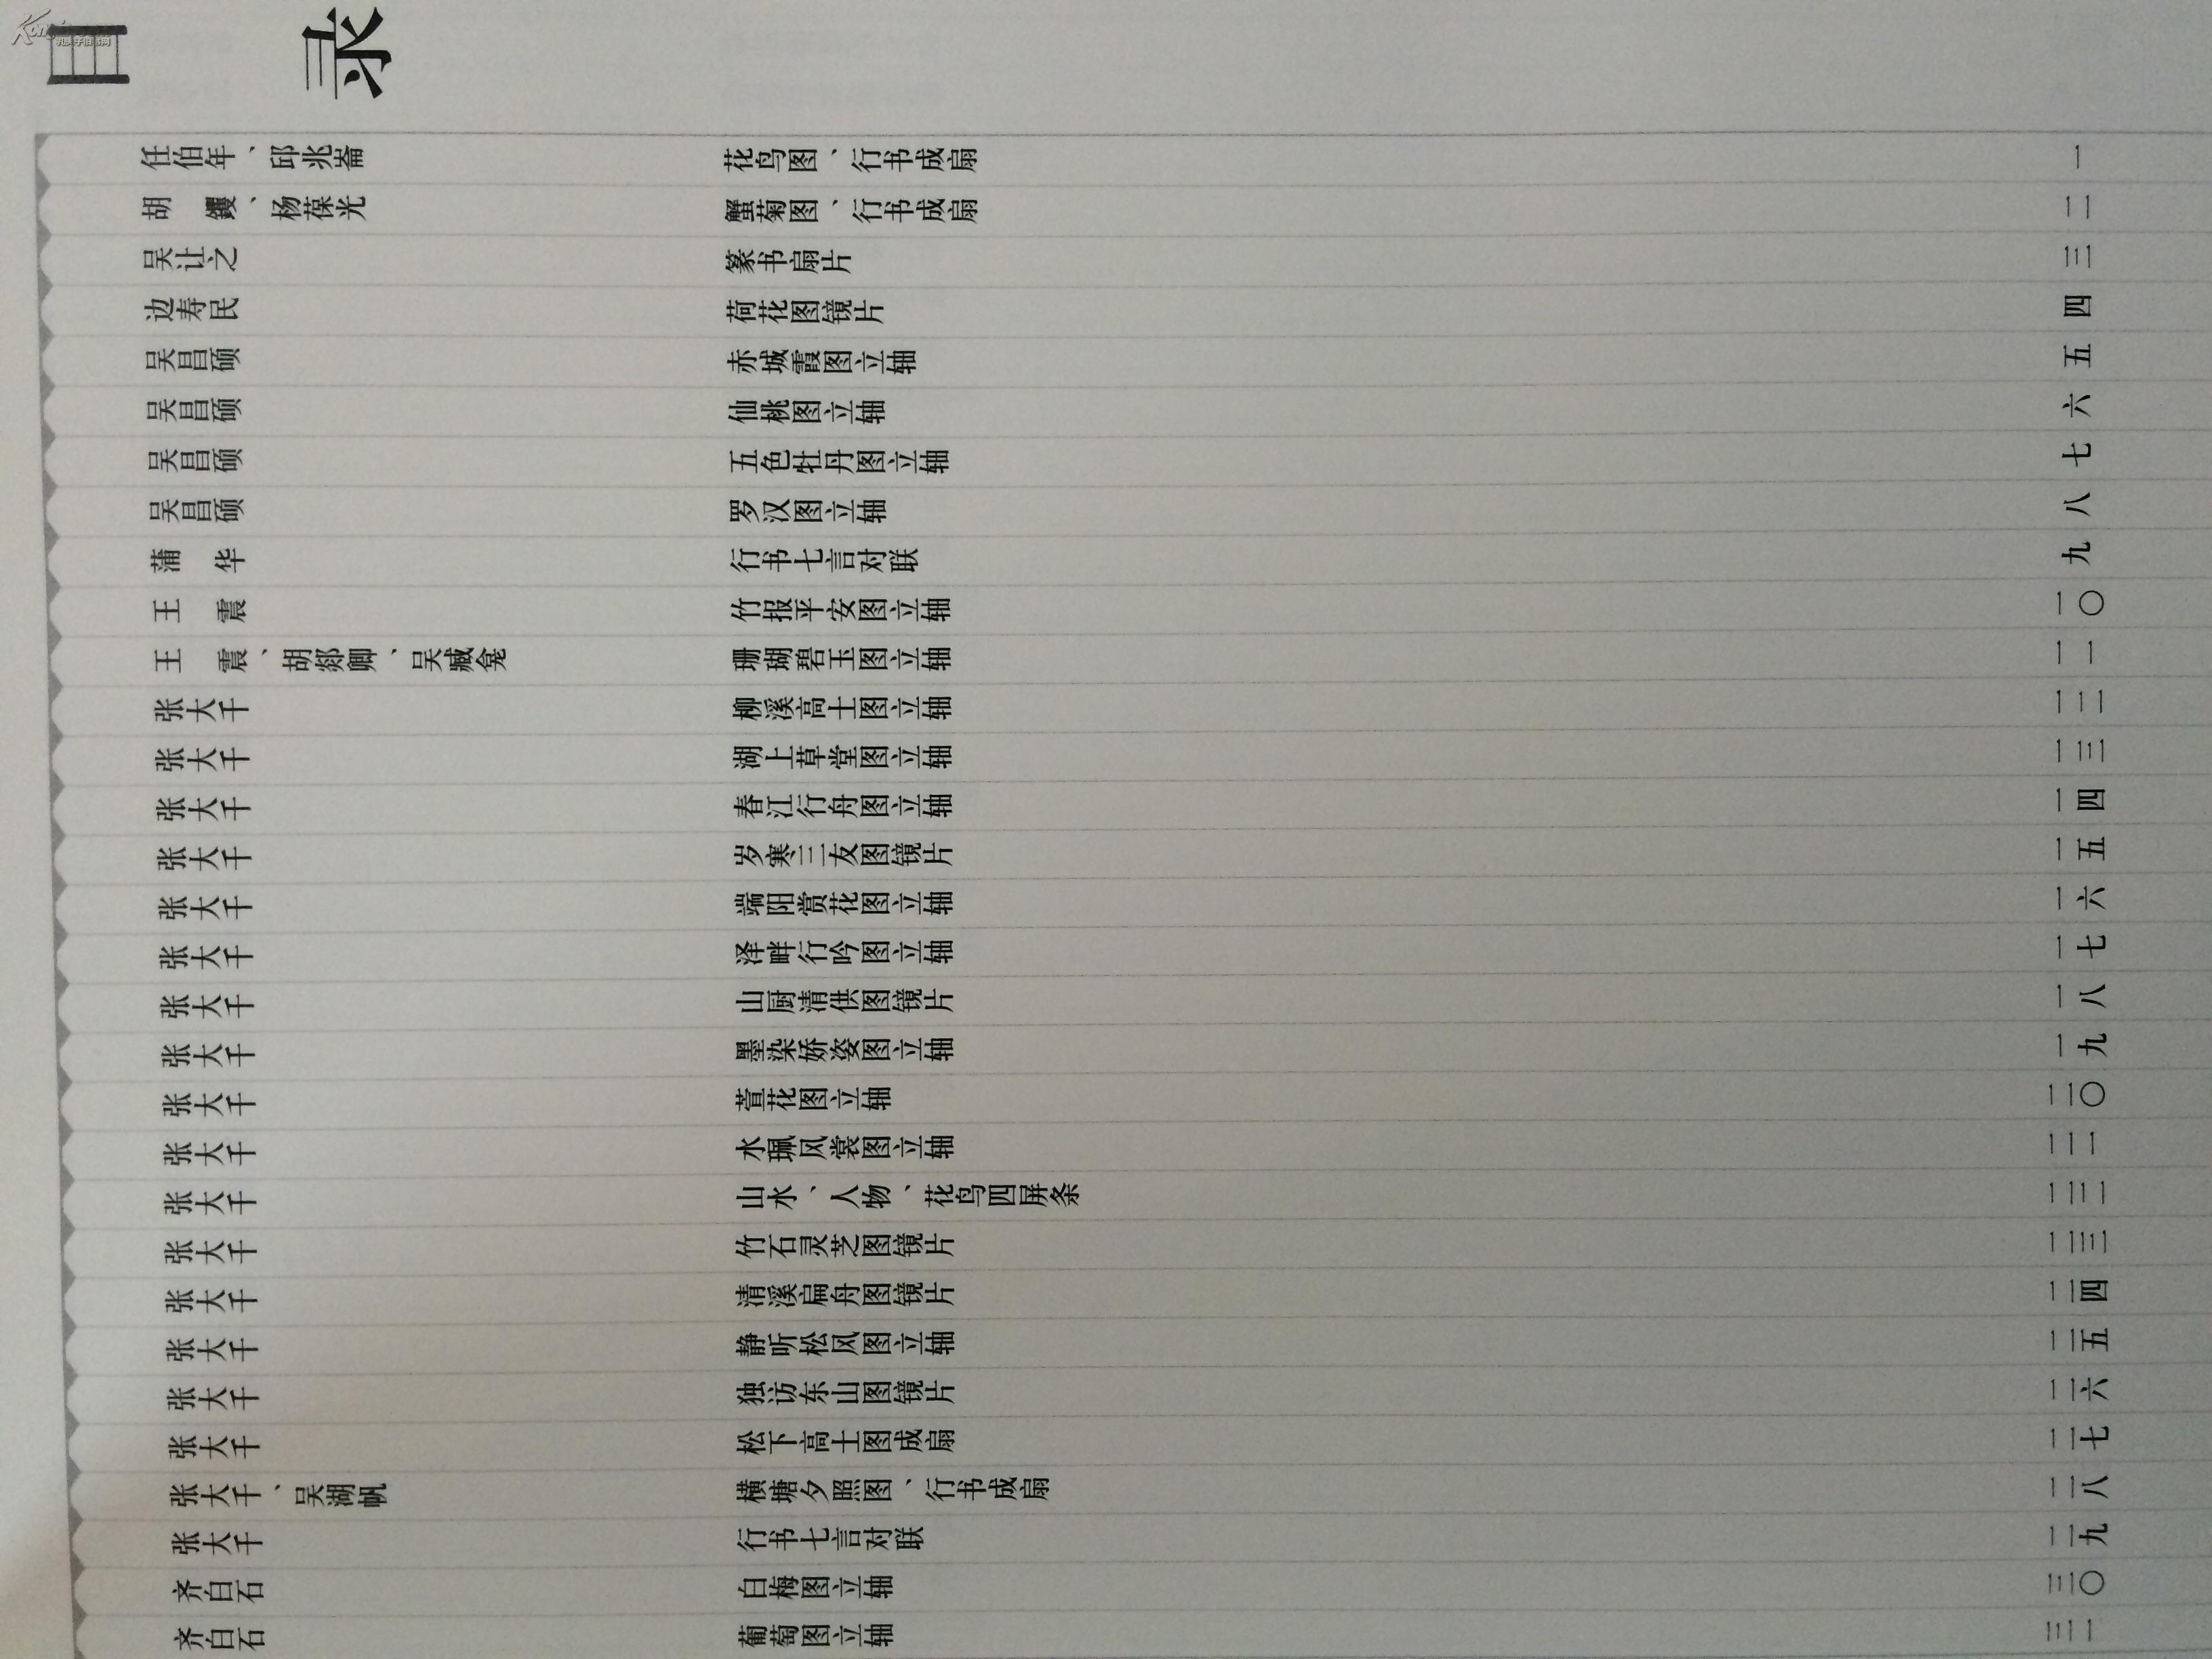 目录
任伯年、邱兆崙 花鸟图、行书成扇 一
胡 钁、杨葆光 蟹菊图、行书成扇 二
吴让之 篆书扇片 三
边寿民 荷花图镜片 四
吴昌硕 赤城霞图立轴 五
吴昌硕 仙桃图立轴 六
吴昌硕 五色牡丹图立轴 七
吴昌硕 罗汉图立轴 八
蒲 华 行书七言对联 九
王 震 竹报平安图立轴 一〇
王 震、胡郯卿、吴臧龛 珊瑚碧玉图立轴 一一
张大千 柳溪高士图立轴 一二
张大千 湖上草堂图立轴 一三
张大千 春江行舟图立轴 一四
张大千 岁寒三友图镜片 一五
张大千 端阳赏花图立轴 一六
张大千 泽畔行吟图立轴 一七
张大千 山厨清供图镜片 一八
张大千 墨染娇姿图立轴 一九
张大千 萱花图立轴 二〇
张大千 水珮风裳图立轴 二一
张大千 山水、人物、花鸟四屏条 二二
张大千 竹石灵芝图镜片 二三
张大千 清溪扁舟图镜片 二四
张大千 静听松风图立轴 二五
张大千 独访东山图镜片 二六
张大千 松下高士图成扇 二七
张大千、吴湖帆 横塘夕照图、行书成扇 二八
张大千 行书七言对联 二九
齐白石 白梅图立轴 三〇
齐白石 葡萄图立轴 三一